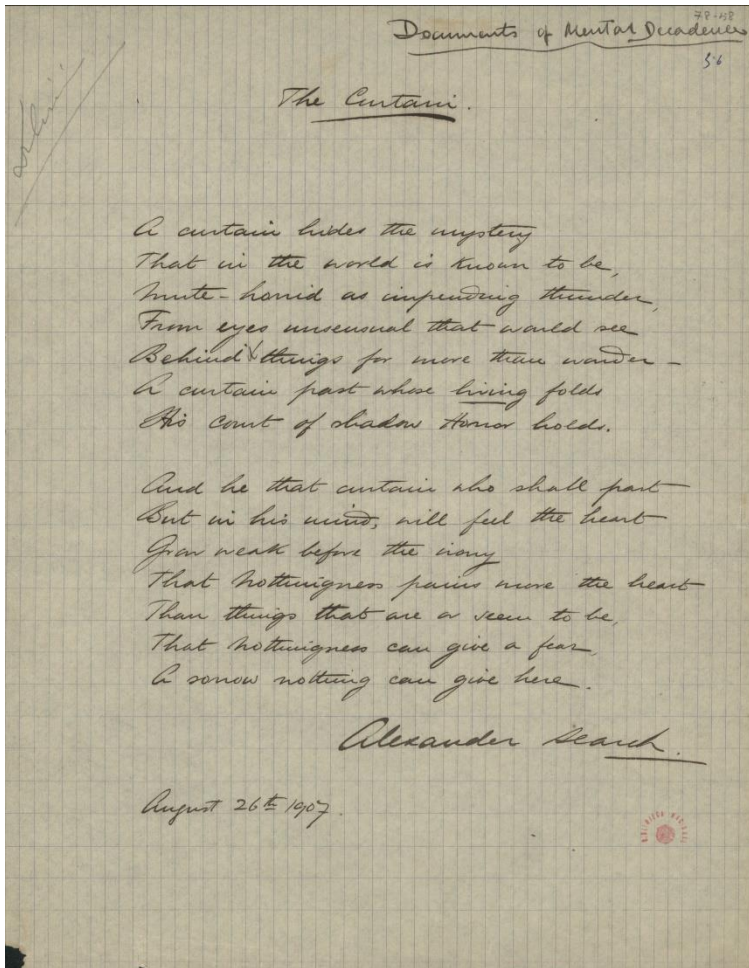 78-58
Documents of Mental Decadence
56
The Curtain.
A curtain hides the mystery
That in the world is known to be,
Mute-horrid as impending thunder,
From eyes unsensual that would see
Behind things for more than wonder —
A curtain past whose living folds
His court of shadow Horror holds.
And he that curtain who shall part
But in his mind, will feel the heart
Grow weak before the irony
That Nothingness pains more the heart
Than things that are or seem to be,
That Nothingness can give a fear,
A sorrow nothing can give here.
Alexander Search.
August 26th 1907.